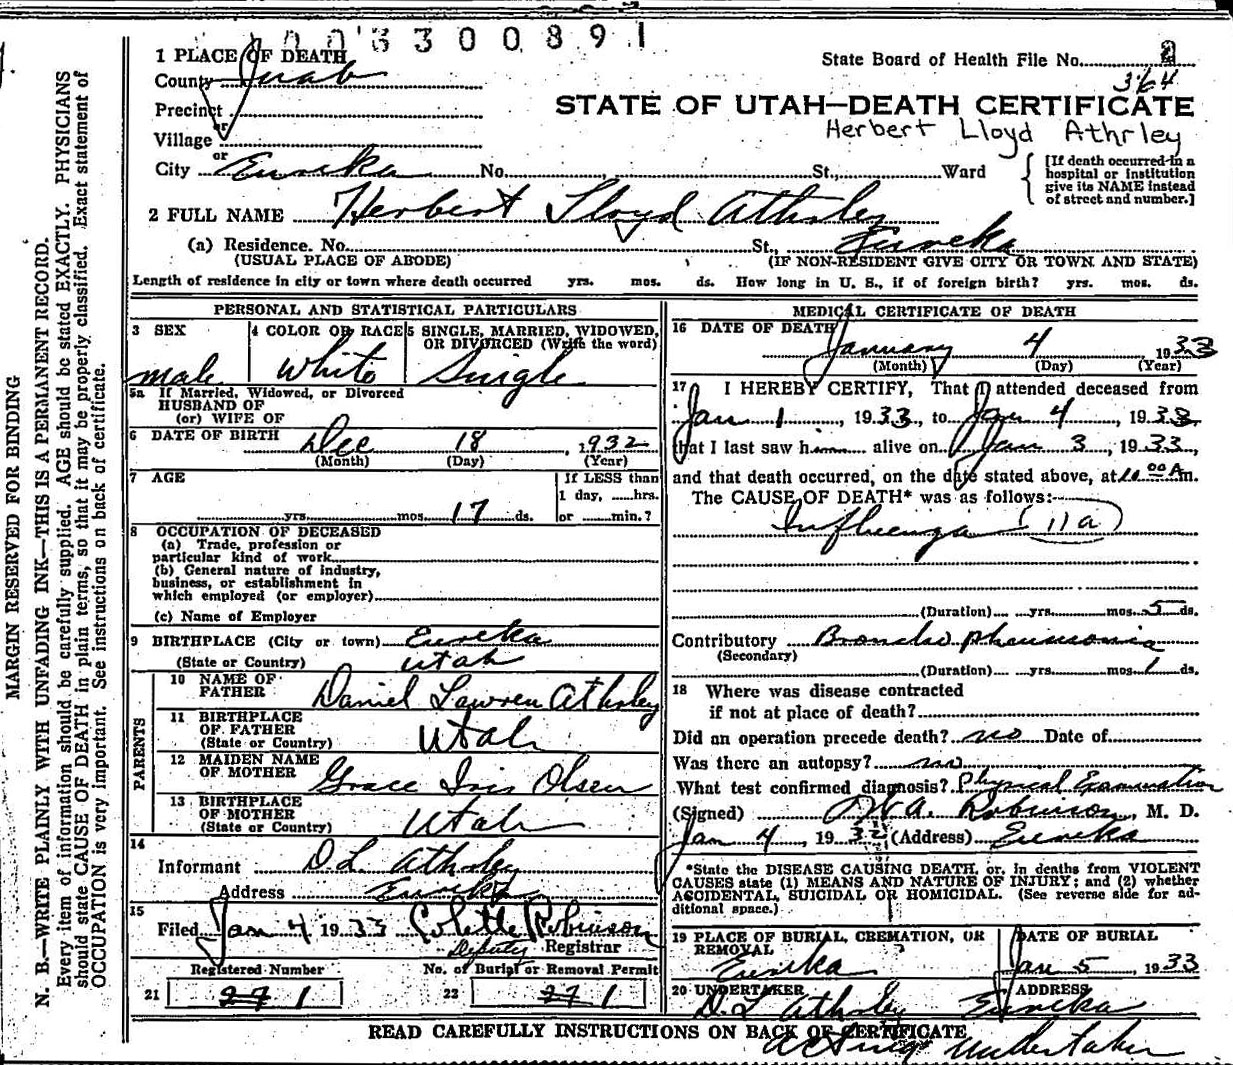 003300891
1 PLACE OF DEATH
State Board of Health File No. 2
County Juab
364
Precinct
STATE OF UTAH—DEATH CERTIFICATE
or
Herbert Lloyd Athrley
Village
or
City Eureka No. St., Ward
[If death occurred in a hospital or institution give its NAME instead of street and number.]
2 FULL NAME Herbert Lloyd Athrley
(a) Residence. No. St., Eureka
(USUAL PLACE OF ABODE) (IF NON-RESIDENT GIVE CITY OR TOWN AND STATE)
Length of residence in city or town where death occurred yrs. mos. ds. How long in U. S., if of foreign birth? yrs. mos. ds.
PERSONAL AND STATISTICAL PARTICULARS
3 SEX
male
4 COLOR OR RACE
White
5 SINGLE, MARRIED, WIDOWED,
OR DIVORCED (Write the word)
Single
5a If Married, Widowed, or Divorced
HUSBAND OF
(or) WIFE OF
6 DATE OF BIRTH Dec 18, 1932
(Month) (Day) (Year)
7 AGE
yrs. mos. 17 ds.
If LESS than
1 day, hrs.
or min.?
8 OCCUPATION OF DECEASED
(a) Trade, profession or
particular kind of work
(b) General nature of industry,
business, or establishment in
which employed (or employer)
(c) Name of Employer
9 BIRTHPLACE (City or town) Eureka
(State or Country) Utah
PARENTS
10 NAME OF
FATHER Daniel Lawren Athrley
11 BIRTHPLACE
OF FATHER
(State or Country) Utah
12 MAIDEN NAME
OF MOTHER Grace Iris Olsen
13 BIRTHPLACE
OF MOTHER
(State or Country) Utah
14
Informant D.L. Athrley
Address Eureka
15
Filed Jan 4 1933 Colette Robinson
Deputy Registrar
Registered Number No. of Burial or Removal Permit
21 27 1 22 27 1
MEDICAL CERTIFICATE OF DEATH
16 DATE OF DEATH
January 4 1933
(Month) (Day) (Year)
17 I HEREBY CERTIFY, That I attended deceased from
Jan 1, 1933, to Jan 4, 1933
that I last saw him alive on Jan 3, 1933,
and that death occurred, on the date stated above, at 10 00 A m.
The CAUSE OF DEATH* was as follows:
Influenza (11a)
(Duration) yrs. mos. 5 ds.
Contributory Broncho pneumonia
(Secondary)
(Duration) yrs. mos. 1 ds.
18 Where was disease contracted
if not at place of death?
Did an operation precede death? no Date of
Was there an autopsy? no
What test confirmed diagnosis? Physical Examination
(Signed) Robinson, M. D.
Jan 4 1933 (Address) Eureka
*State the DISEASE CAUSING DEATH, or, in deaths from VIOLENT
CAUSES state (1) MEANS AND NATURE OF INJURY; and (2) whether
ACCIDENTAL, SUICIDAL OR HOMICIDAL. (See reverse side for ad-
ditional space.)
19 PLACE OF BURIAL, CREMATION, OR
REMOVAL
Eureka
DATE OF BURIAL
Jan 5, 1933
20 UNDERTAKER
D.L. Athrley
ADDRESS
Eureka
READ CAREFULLY INSTRUCTIONS ON BACK OF CERTIFICATE
Acting Undertaker
MARGIN RESERVED FOR BINDING
N. B.—WRITE PLAINLY WITH UNFADING INK—THIS IS A PERMANENT RECORD.
Every item of information should be carefully supplied. AGE should be stated EXACTLY. PHYSICIANS
should state CAUSE OF DEATH in plain terms, so that it may be properly classified. Exact statement of
OCCUPATION is very important. See instructions on back of certificate.